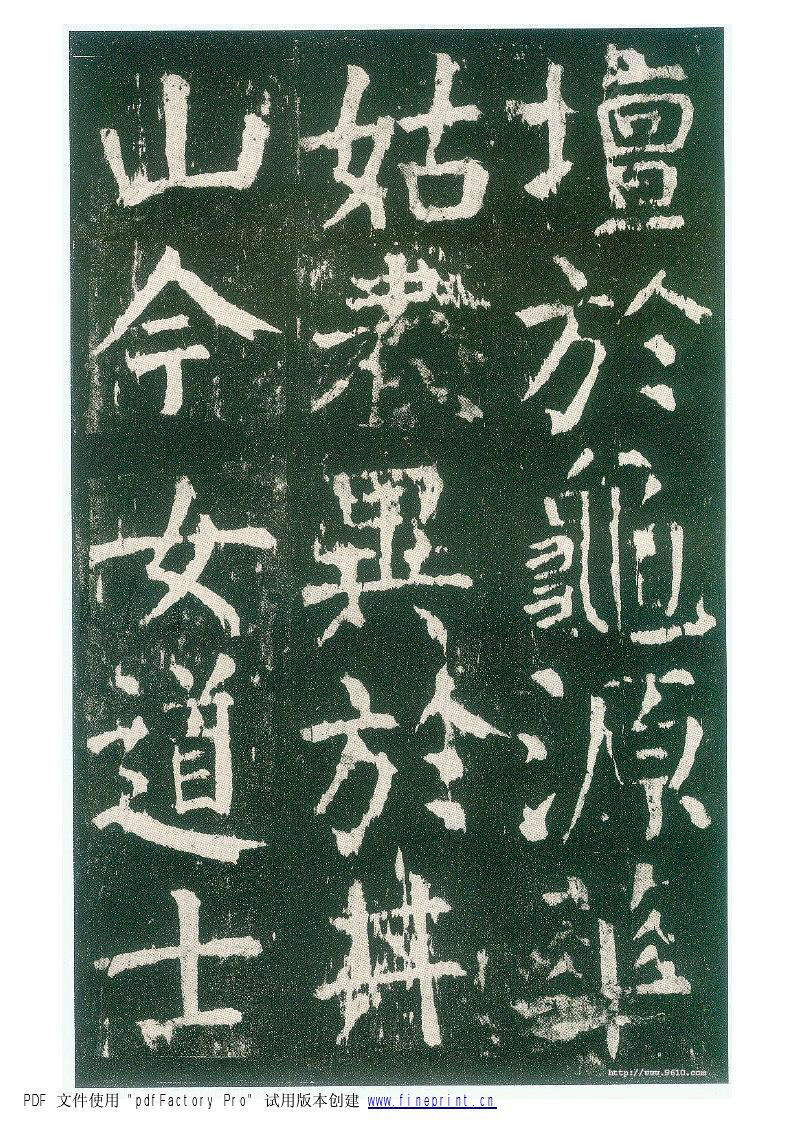 壇於龜源華
姑表異於井
山今女道士
http://www.9610.com
PDF 文件使用 "pdfFactory Pro" 试用版本创建 www.fineprint.cn